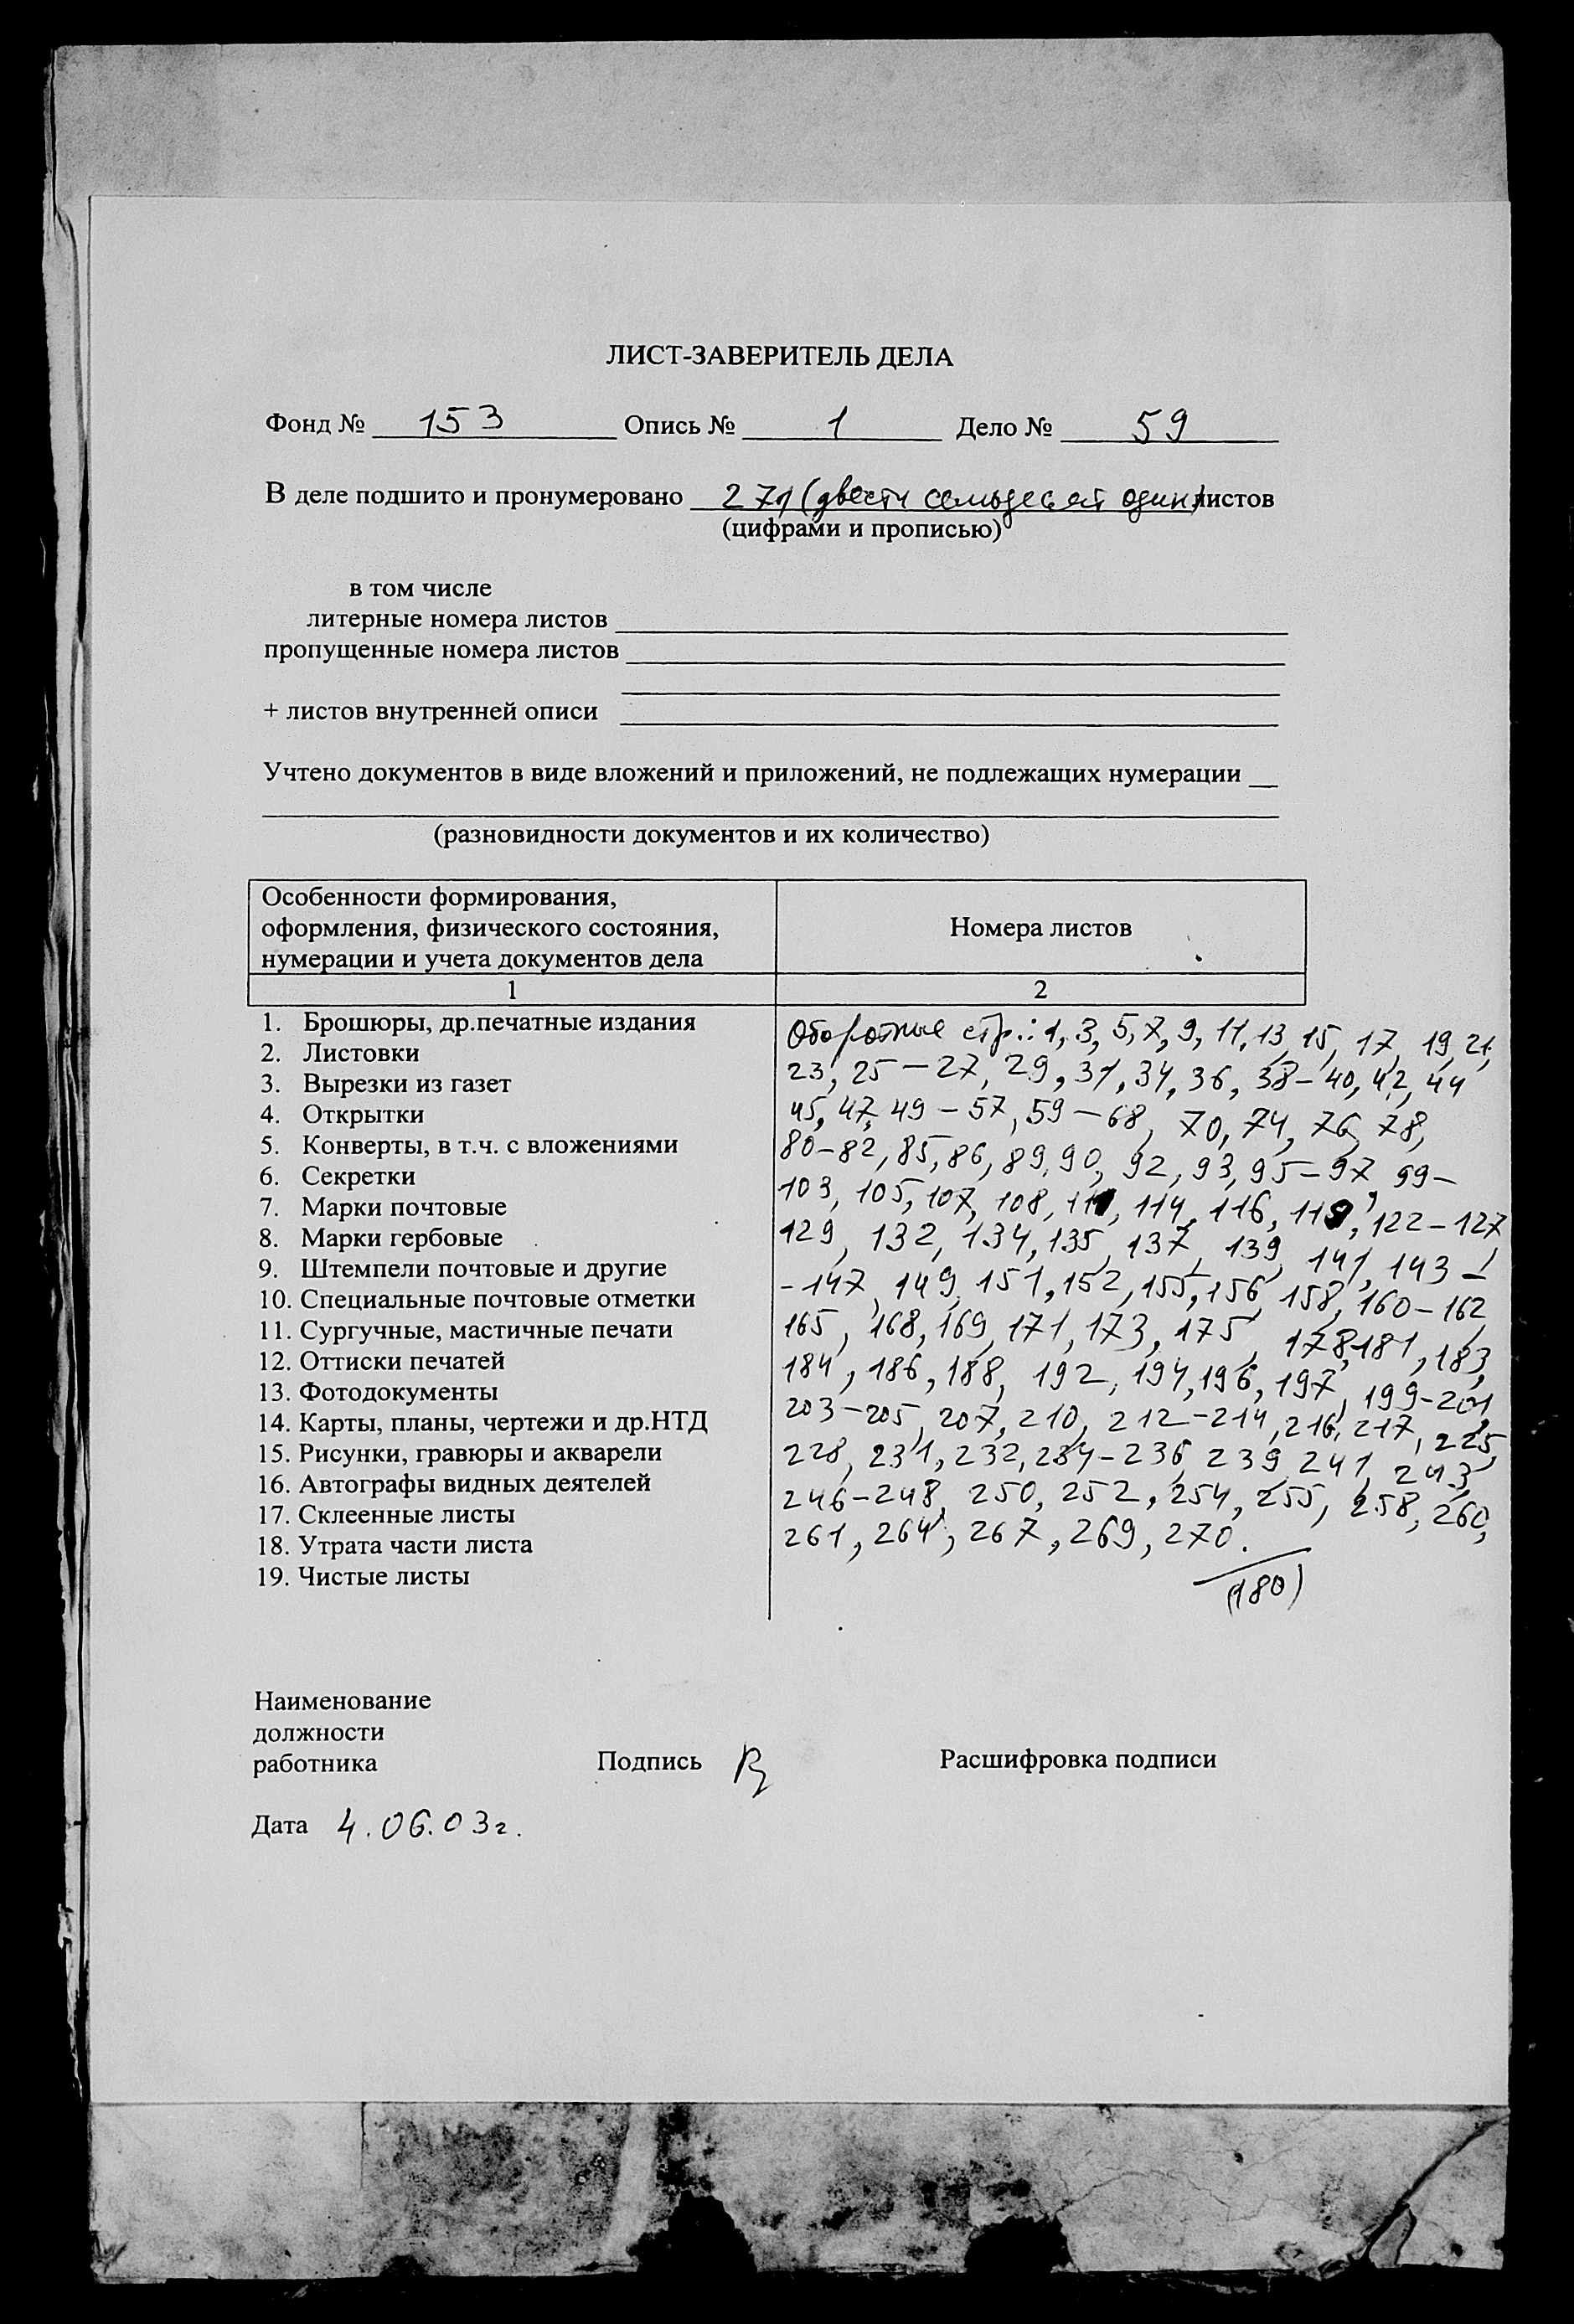 ЛИСТ-ЗАВЕРИТЕЛЬ ДЕЛА
Фонд № 153 Опись № 1 Дело № 59
В деле подшито и пронумеровано 271 (двести семьдесят один) листов
(цифрами и прописью)
в том числе
литерные номера листов
пропущенные номера листов
+ листов внутренней описи
Учтено документов в виде вложений и приложений, не подлежащих нумерации
(разновидности документов и их количество)
Особенности формирования,
оформления, физического состояния,
нумерации и учета документов дела
Номера листов
1 2
1. Брошюры, др.печатные издания
2. Листовки
3. Вырезки из газет
4. Открытки
5. Конверты, в т.ч. с вложениями
6. Секретки
7. Марки почтовые
8. Марки гербовые
9. Штемпели почтовые и другие
10. Специальные почтовые отметки
11. Сургучные, мастичные печати
12. Оттиски печатей
13. Фотодокументы
14. Карты, планы, чертежи и др.НТД
15. Рисунки, гравюры и акварели
16. Автографы видных деятелей
17. Склеенные листы
18. Утрата части листа
19. Чистые листы
Оборотные стр.: 1, 3, 5, 7, 9, 11, 13, 15, 17, 19, 21,
23, 25 – 27, 29, 31, 34, 36, 38 – 40, 42, 44
45, 47, 49 – 57, 59 – 68, 70, 74, 76, 78,
80–82, 85, 86, 89, 90, 92, 93, 95 – 97, 99 –
103, 105, 107, 108, 114, 116, 122 – 127
129, 132, 134, 135, 137, 139, 141, 143 –
- 147, 149, 151, 152, 155, 156, 158, 160 – 162,
165, 168, 169, 171, 173, 175, 178, 181, 183,
184, 186, 188, 192, 194, 196, 197, 199–201,
203–205, 207, 210, 212–214, 216, 217, 225,
228, 231, 232, 234–236, 239, 241, 243,
246–248, 250, 252, 254, 255, 258, 260,
261, 264, 267, 269, 270.
(180)
Наименование
должности
работника Подпись Расшифровка подписи
Дата 4.06.03г.